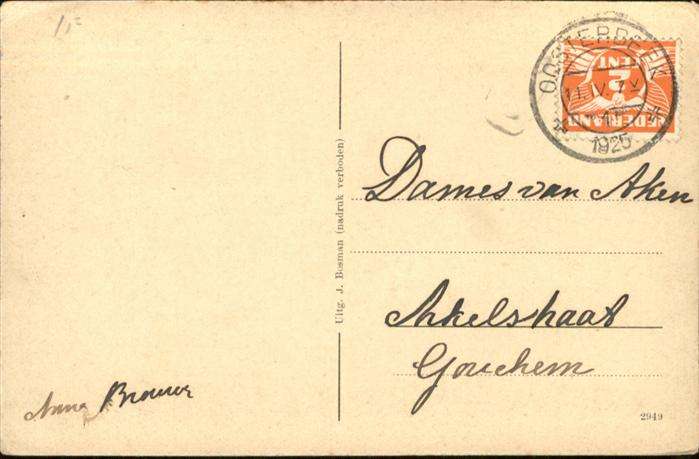 1,=
OOSTERBEEK
11.IV.
1925
2
CENT
NEDERLAND
Dames van Aken
Arkelstraat
Gorichem
Uitg. J. Bosman (nadruk verboden)
Anna Brouwer
2949